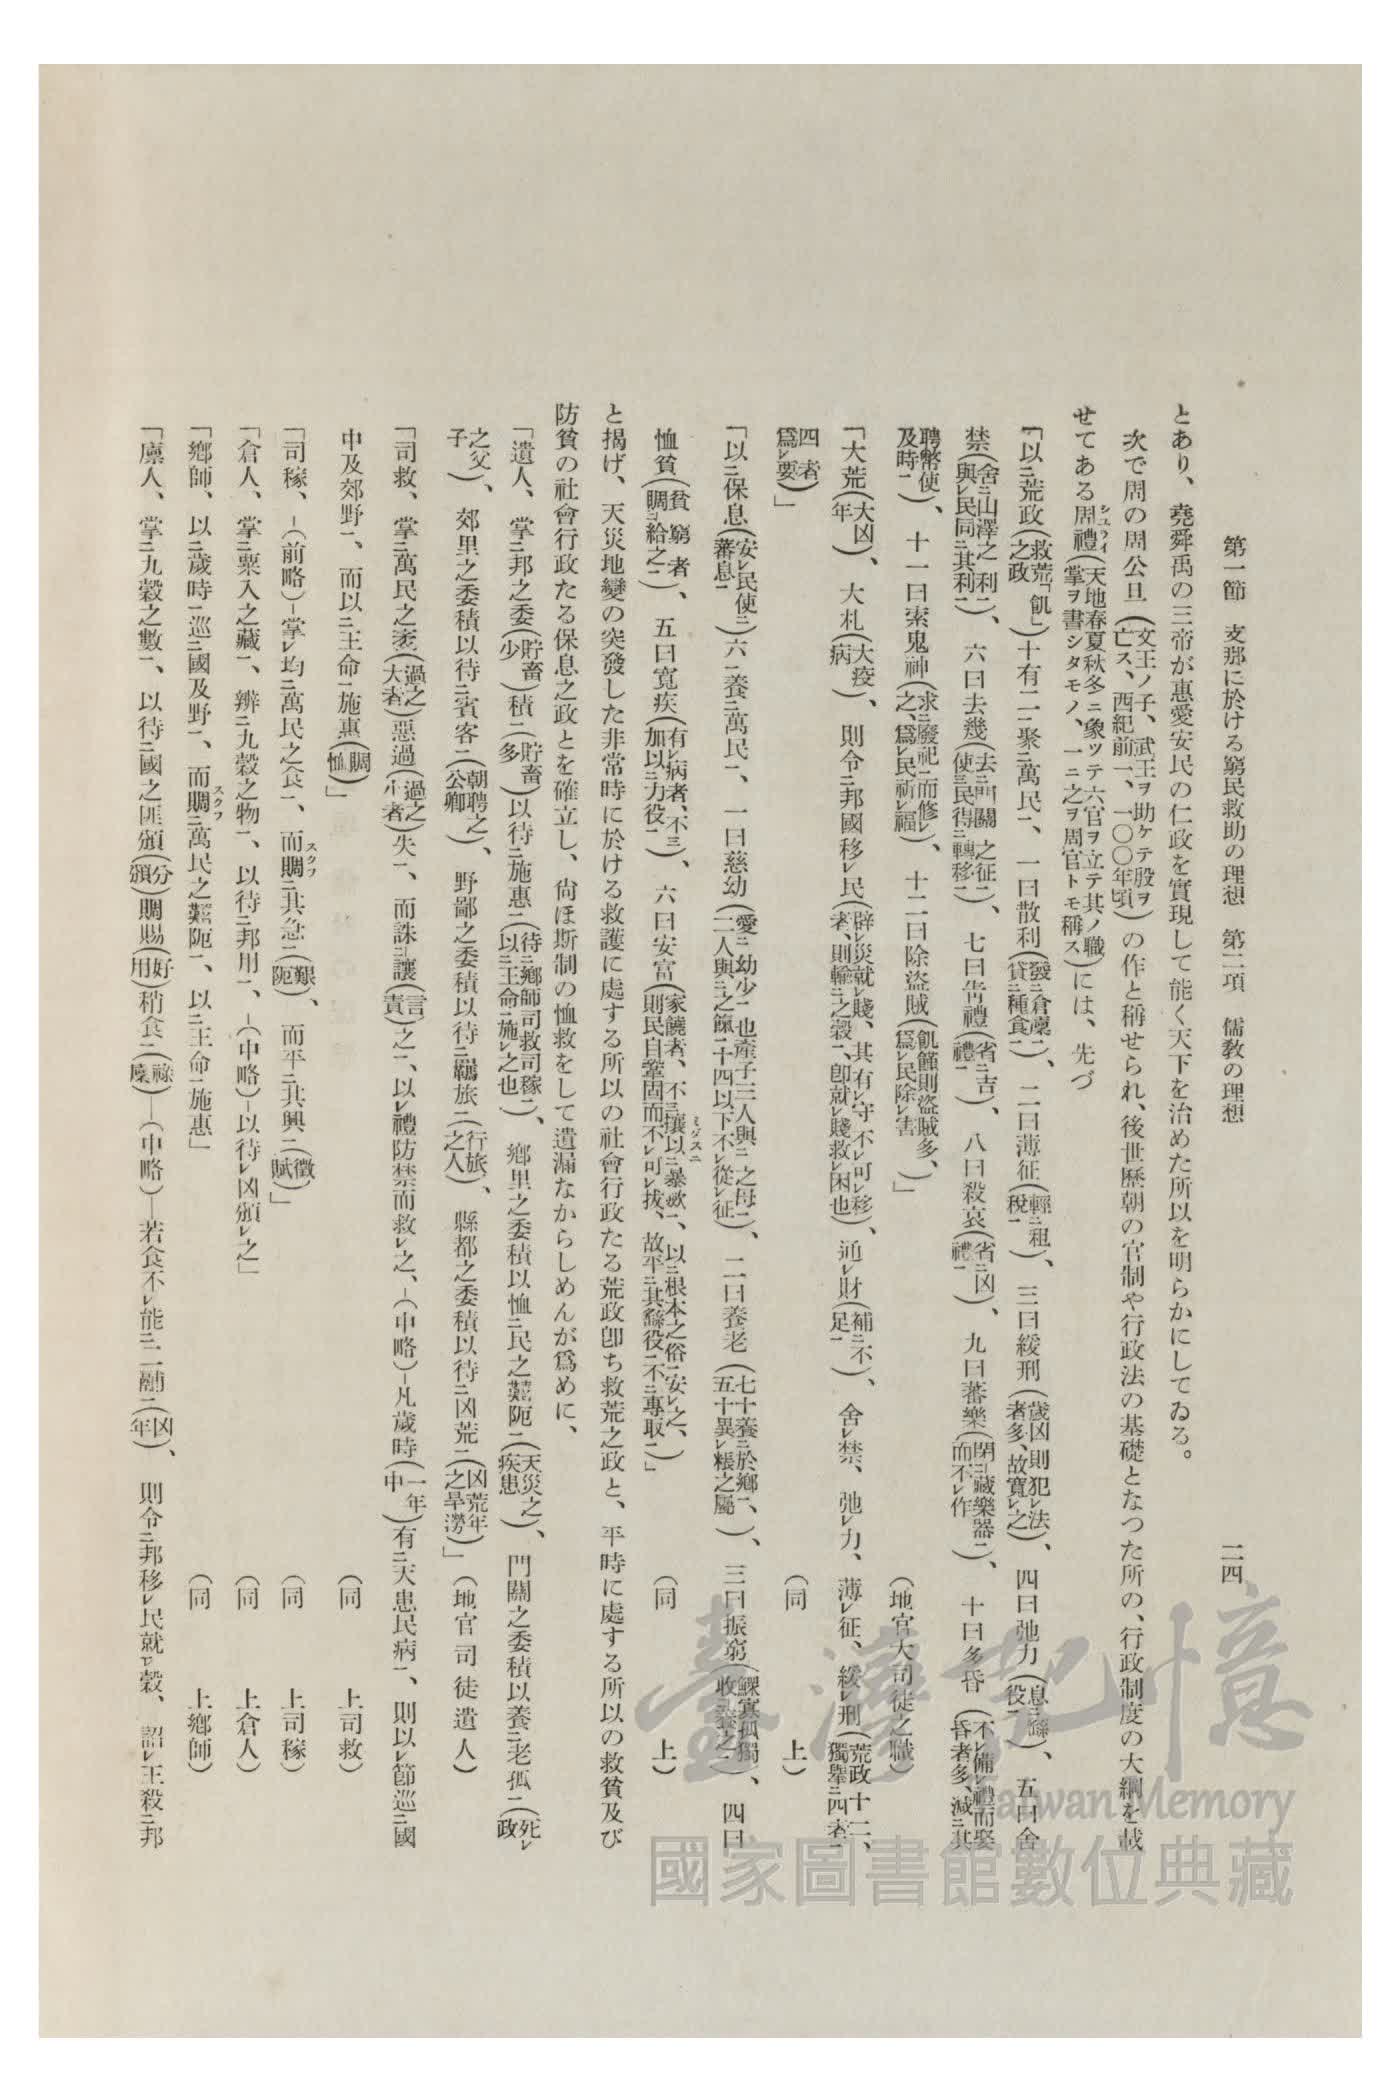 第一節　支那に於ける窮民救助の理想　第二項　儒教の理想　　二四
とあり、堯舜禹の三帝が惠愛安民の仁政を實現して能く天下を治めた所以を明らかにしてゐる。
次で周の周公旦(文王ノ子、武王ヲ助ケテ殷ヲ亡ス、西紀前一、一〇〇年頃)の作と稱せられ、後世歷朝の官制や行政法の基礎となつた所の、行政制度の大綱を載
せてある周禮シユライ(天地春夏秋冬ニ象ツテ六官ヲ立テ其ノ職掌ヲ書シタモノ、一ニ之ヲ周官トモ稱ス)には、先づ
「以ニ荒政(救荒「飢」之政)十有二一聚ニ萬民一、一曰散利(發ニ倉廩一、貸ニ種食一)、二曰薄征(輕ニ租稅一)、三曰緩刑(歲凶則犯レ法者多、故寬レ之)、四曰弛力(息ニ繇役一)、五曰舍
禁(舍ニ山澤之利一、與レ民同ニ其利一)、六曰去幾(去ニ門關之征一、使ニ民得ニ轉移一)、七曰眚禮(省ニ吉禮一)、八曰殺哀(省ニ凶禮一)、九曰蕃樂(閉ニ藏樂器一而不レ作)、十曰多昏(不レ備レ禮而娶昏者多、減ニ其
聘幣使ニ及時一)、十一曰索鬼神(求ニ廢祀一而修レ之、爲レ民祈レ福)、十二曰除盜賊(飢饉則盜賊多、爲レ民除レ害)」　(地官大司徒之職)
「大荒(大凶年)、大札(大疫病)、則令ニ邦國移レ民(辟レ災就レ賤、其有レ守不レ可レ移者、則輸ニ之穀一、卽就レ賤救レ困也)、通レ財(補ニ不足一)、舍レ禁、弛レ力、薄レ征、緩レ刑(荒政十二、獨擧ニ四者一
四者爲レ要)」　(同　上)
「以ニ保息(安レ民使ニ蕃息一)六一養ニ萬民一、一曰慈幼(愛ニ幼少一也產子三人與ニ之母一、二人與ニ之餼一十四以下不レ從レ征)、二曰養老(七十養ニ於鄉一、五十異レ粻之屬)、三曰振窮(鰥寡孤獨收ニ養之一)、四曰
恤貧(貧窮者賙ニ給之一)、五曰寬疾(有レ病者、不三加以ニ力役一)、六曰安富(家饒者、不三攘ミダスニ以ニ暴歛一、以ニ根本之俗ニ安レ之、則民自鞏固而不レ可レ拔、故平ニ其繇役一不ニ專取一)」　(同　上)
と揭げ、天災地變の突發した非常時に於ける救護に處する所以の社會行政たる荒政卽ち救荒之政と、平時に處する所以の救貧及び
防貧の社會行政たる保息之政とを確立し、尙ほ斯制の恤救をして遺漏なからしめんが爲めに、
「遺人、掌ニ邦之委(貯畜少)積一(貯畜多)以待ニ施惠一(待ニ鄉師司救司稼一、以ニ王命一施レ之也)、鄉里之委積以恤ニ民之囏阨一(天災之疾患)、門關之委積以養ニ老孤一(死レ政
之父子)、郊里之委積以待ニ賓客一(朝聘之公卿)、野鄙之委積以待ニ羈旅一(行旅之人)、縣都之委積以待ニ凶荒一(凶荒年之旱澇)」(地官司徒遺人)
「司救、掌ニ萬民之衺(過之大者)惡過(過之小者)失一、而誅ニ讓(言責)之一、以レ禮防禁而救レ之、―(中略)―凡歲時(一年中)有ニ天患民病一、則以レ節巡ニ國
中及郊野一、而以ニ王命一施惠(賙恤)」　(同　上司救)
「司稼、―(前略)―掌レ均ニ萬民之食一、而賙スクフニ其急一(艱阨)、而平ニ其興一(徵賦)」　(同　上司稼)
「倉人、掌ニ粟入之藏一、辨ニ九穀之物一、以待ニ邦用一、―(中略)―以待レ凶頒レ之」　(同　上倉人)
「鄉師、以ニ歲時一巡ニ國及野一、而賙スクフニ萬民之囏阨一、以ニ王命一施惠」　(同　上鄉師)
「廩人、掌ニ九穀之數一、以待ニ國之匪頒(分頒)賙賜(好用)稍食一(祿廩)―(中略)―若食不レ能ニ二鬴一(凶年)、則令ニ邦移レ民就レ穀、詔レ王殺ニ邦
臺灣記憶
Taiwan Memory
國家圖書館數位典藏